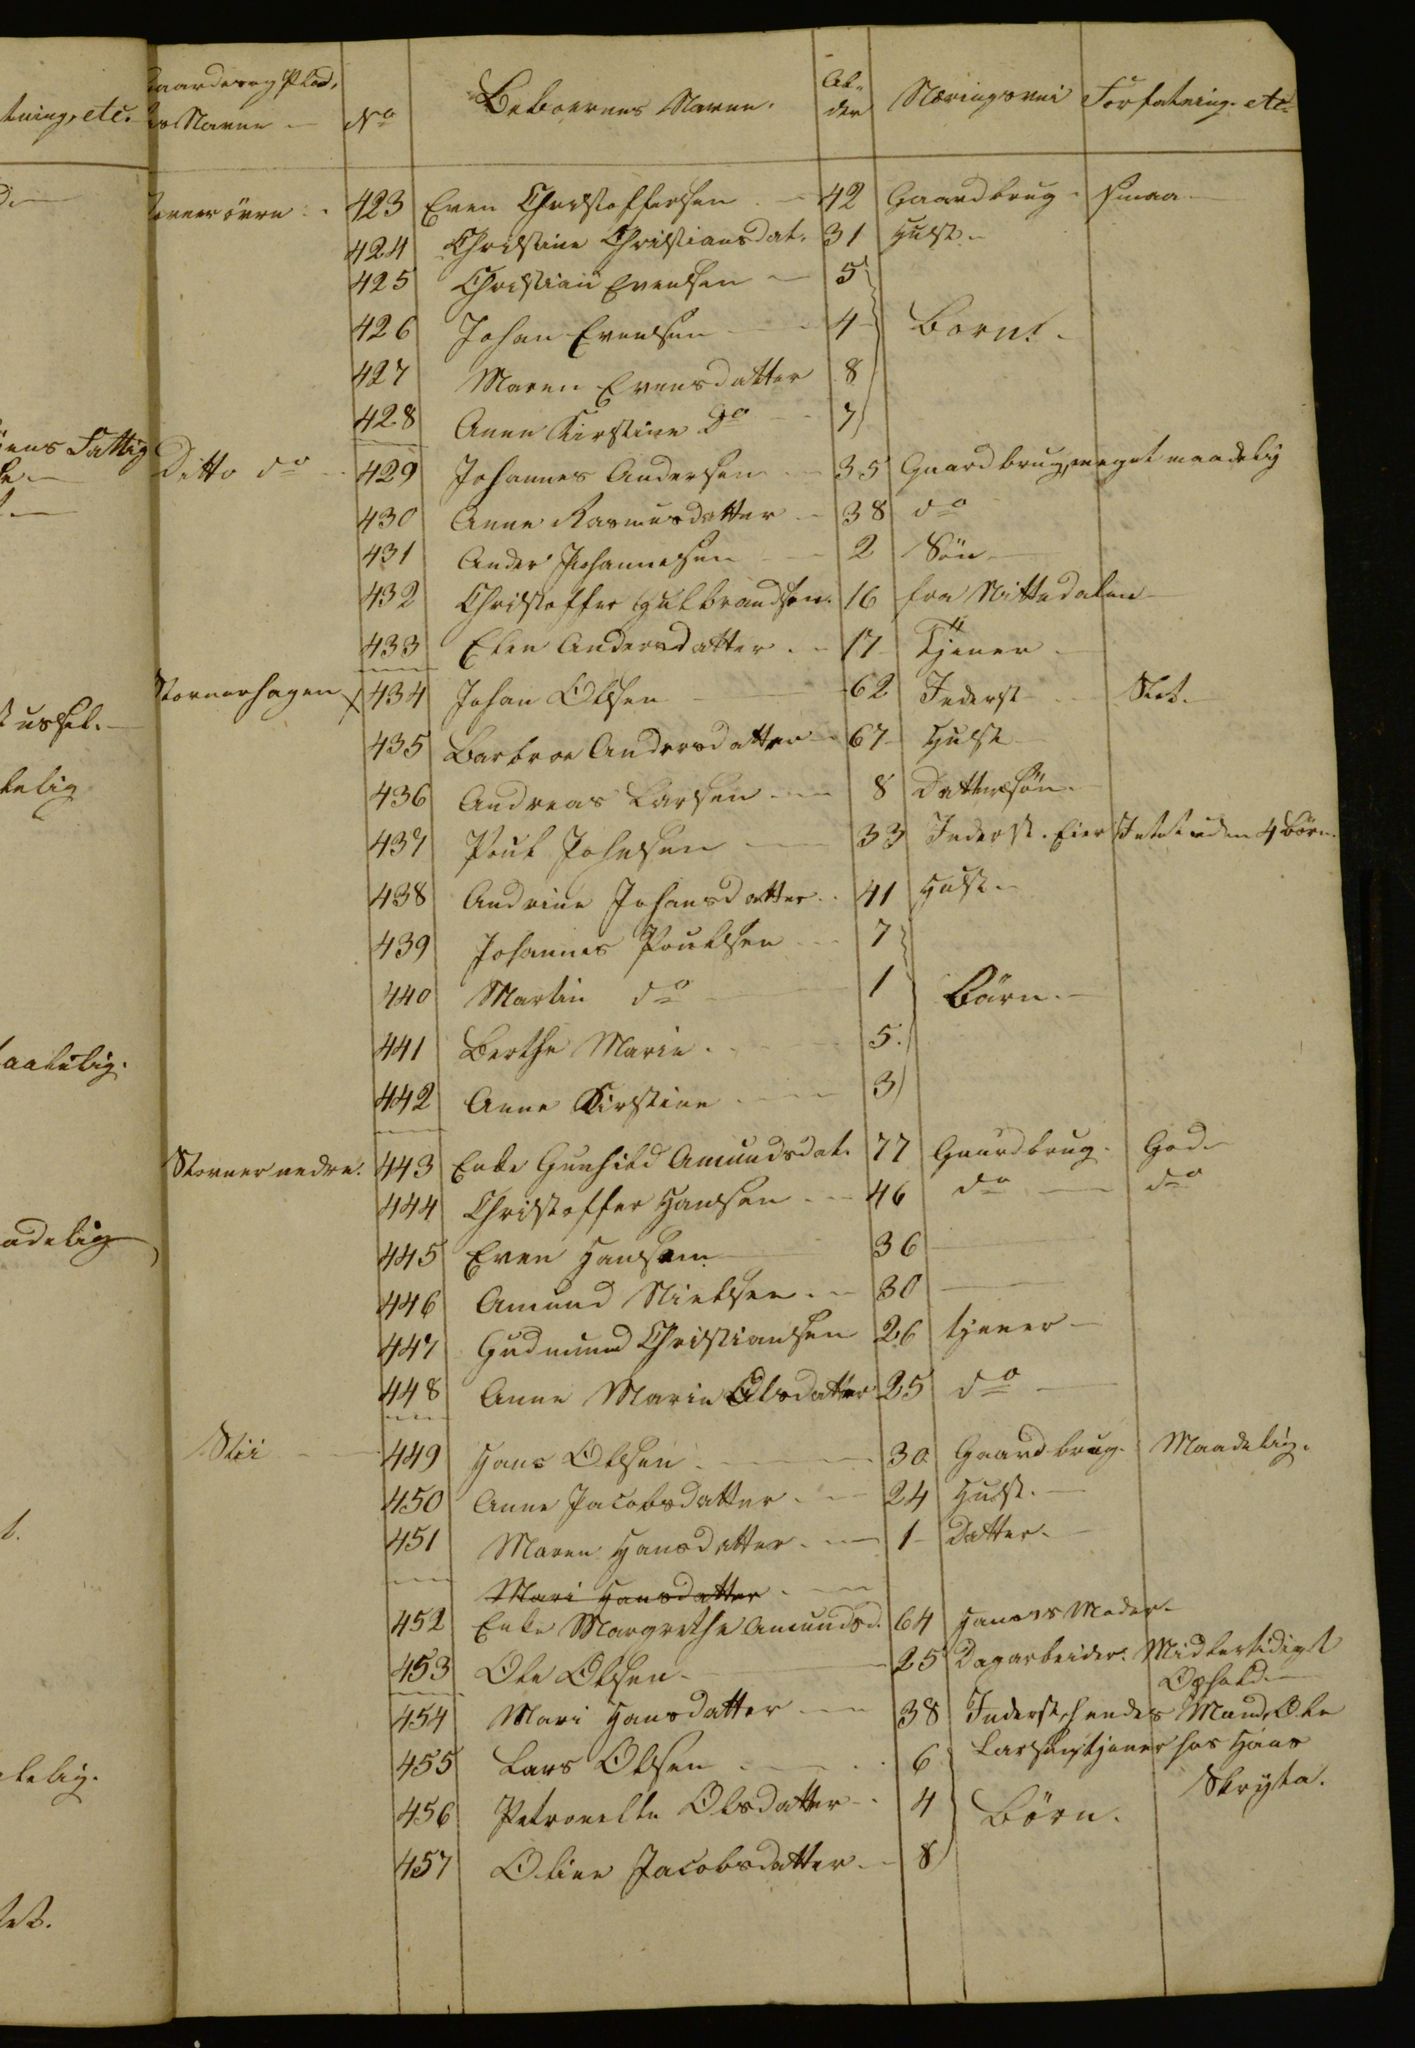 tning, etc.
d.
ens Fattig
ussel.
telig
aadelig.
adelig
delig.
Gaardes og Plad,
Navne
No
Beboernes Navne.
Al-
der
Næringsvei
Forfatning. etc
Storner övre
423 Even Christoffersen 42 Gaardbrug smaa
424 Christine Christiansdat. 31 Hust.
425 Christian Evensen 5
426 Johan Evensen 4 Born.
427 Maren Evensdatter 8
428 Anne Kirstine Do 7
Ditto do 429 Johannes Andersen 35 Gaardbrug, meget maadelig
430 Anne Rasmusdatter 38 do
431 Ander Johannesen 2 Sön
432 Christoffer Gulbrandsen. 16 fra Nittedalen
433 Elen Andersdatter 17 Tjener
Stornerhagen x 434 Johan Olsen 62 Inderst Slet.
435 Barbroe Andersdatter 67 Hust
436 Andreas Larsen 8 Dattersön.
437 Poul Johnsen 33 Inderst. Eier Intet uden 4 Börn.
438 Andrine Johansdatter 41 Hust.
439 Johannes Poulsen 7
440 Martin do 1 Börn.
441 Berthe Marie 5.
442 Anne Kirstine 3
Storner nedre. 443 Enke Gunhild Amundsdat. 77 Gaardbrug. God
444 Christoffer Hansen 46 do do
445 Even Hansen 36
446 Amund Nielsen 30
447 Gudmund Christiansen 26 tjener
448 Anne Marie Olsdatter 25 do
Stii 449 Hans Olsen 30 Gaardbrug. Maadelig.
450 Anne Jacobsdatter 24 Hust.
451 Maren Hansdatter 1 Datter.
Mari Hansdatter
452 Enke Margrethe Amundsd. 64 Hanses Moder.
453 Ole Olsen 25 Dagarbeider. Midlertidigt
Ophold.
454 Mari Hansdatter 38 Inderst, hendes Mand Ole
455 Lars Olsen 6 Larsen tjener hos Hans
Skryta.
456 Petronelle Olsdatter 4 Börn.
457 Oline Jacobsdatter 8